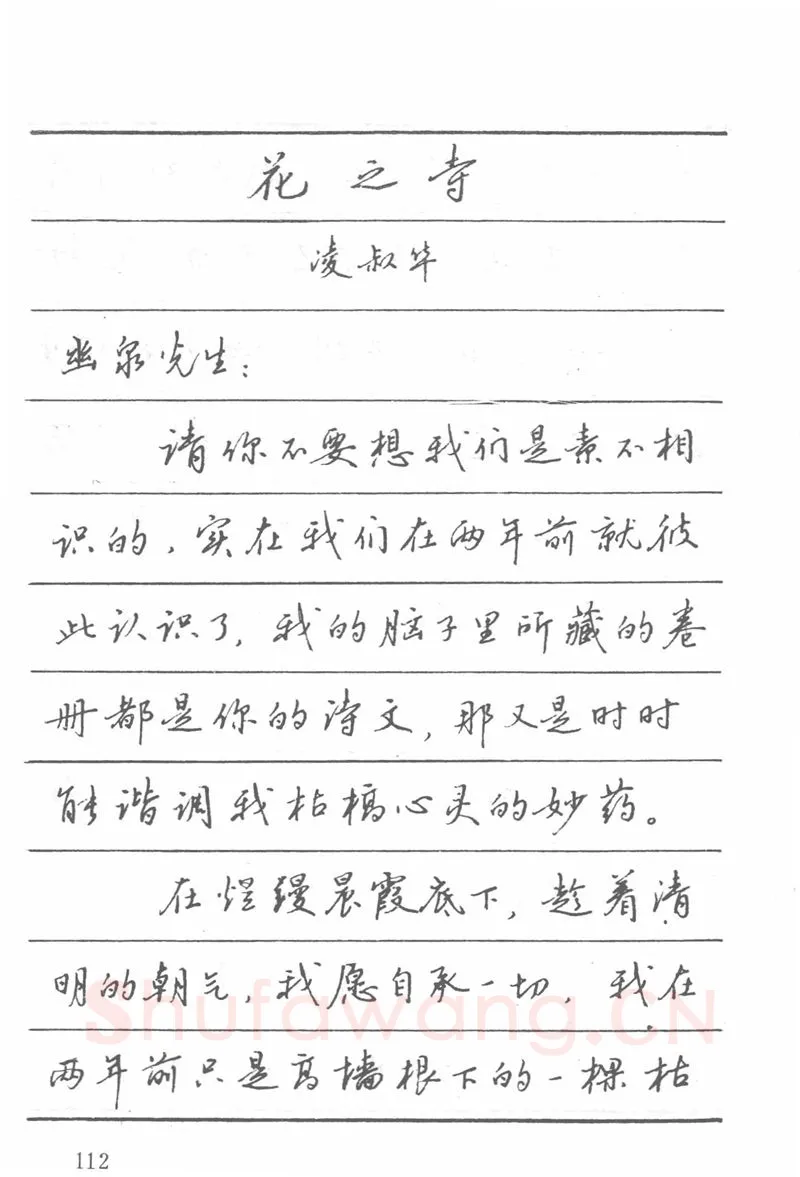 花之寺
凌叔华
幽泉先生：
请你不要想我们是素不相
识的，实在我们在两年前就彼
此认识了，我的脑子里所藏的卷
册都是你的诗文，那又是时时
能谐调我枯槁心灵的妙药。
在烂缦晨霞底下，趁着清
明的朝气，我愿自承一切，我在
两年前只是高墙根下的一棵枯
Shufawang.CN
112